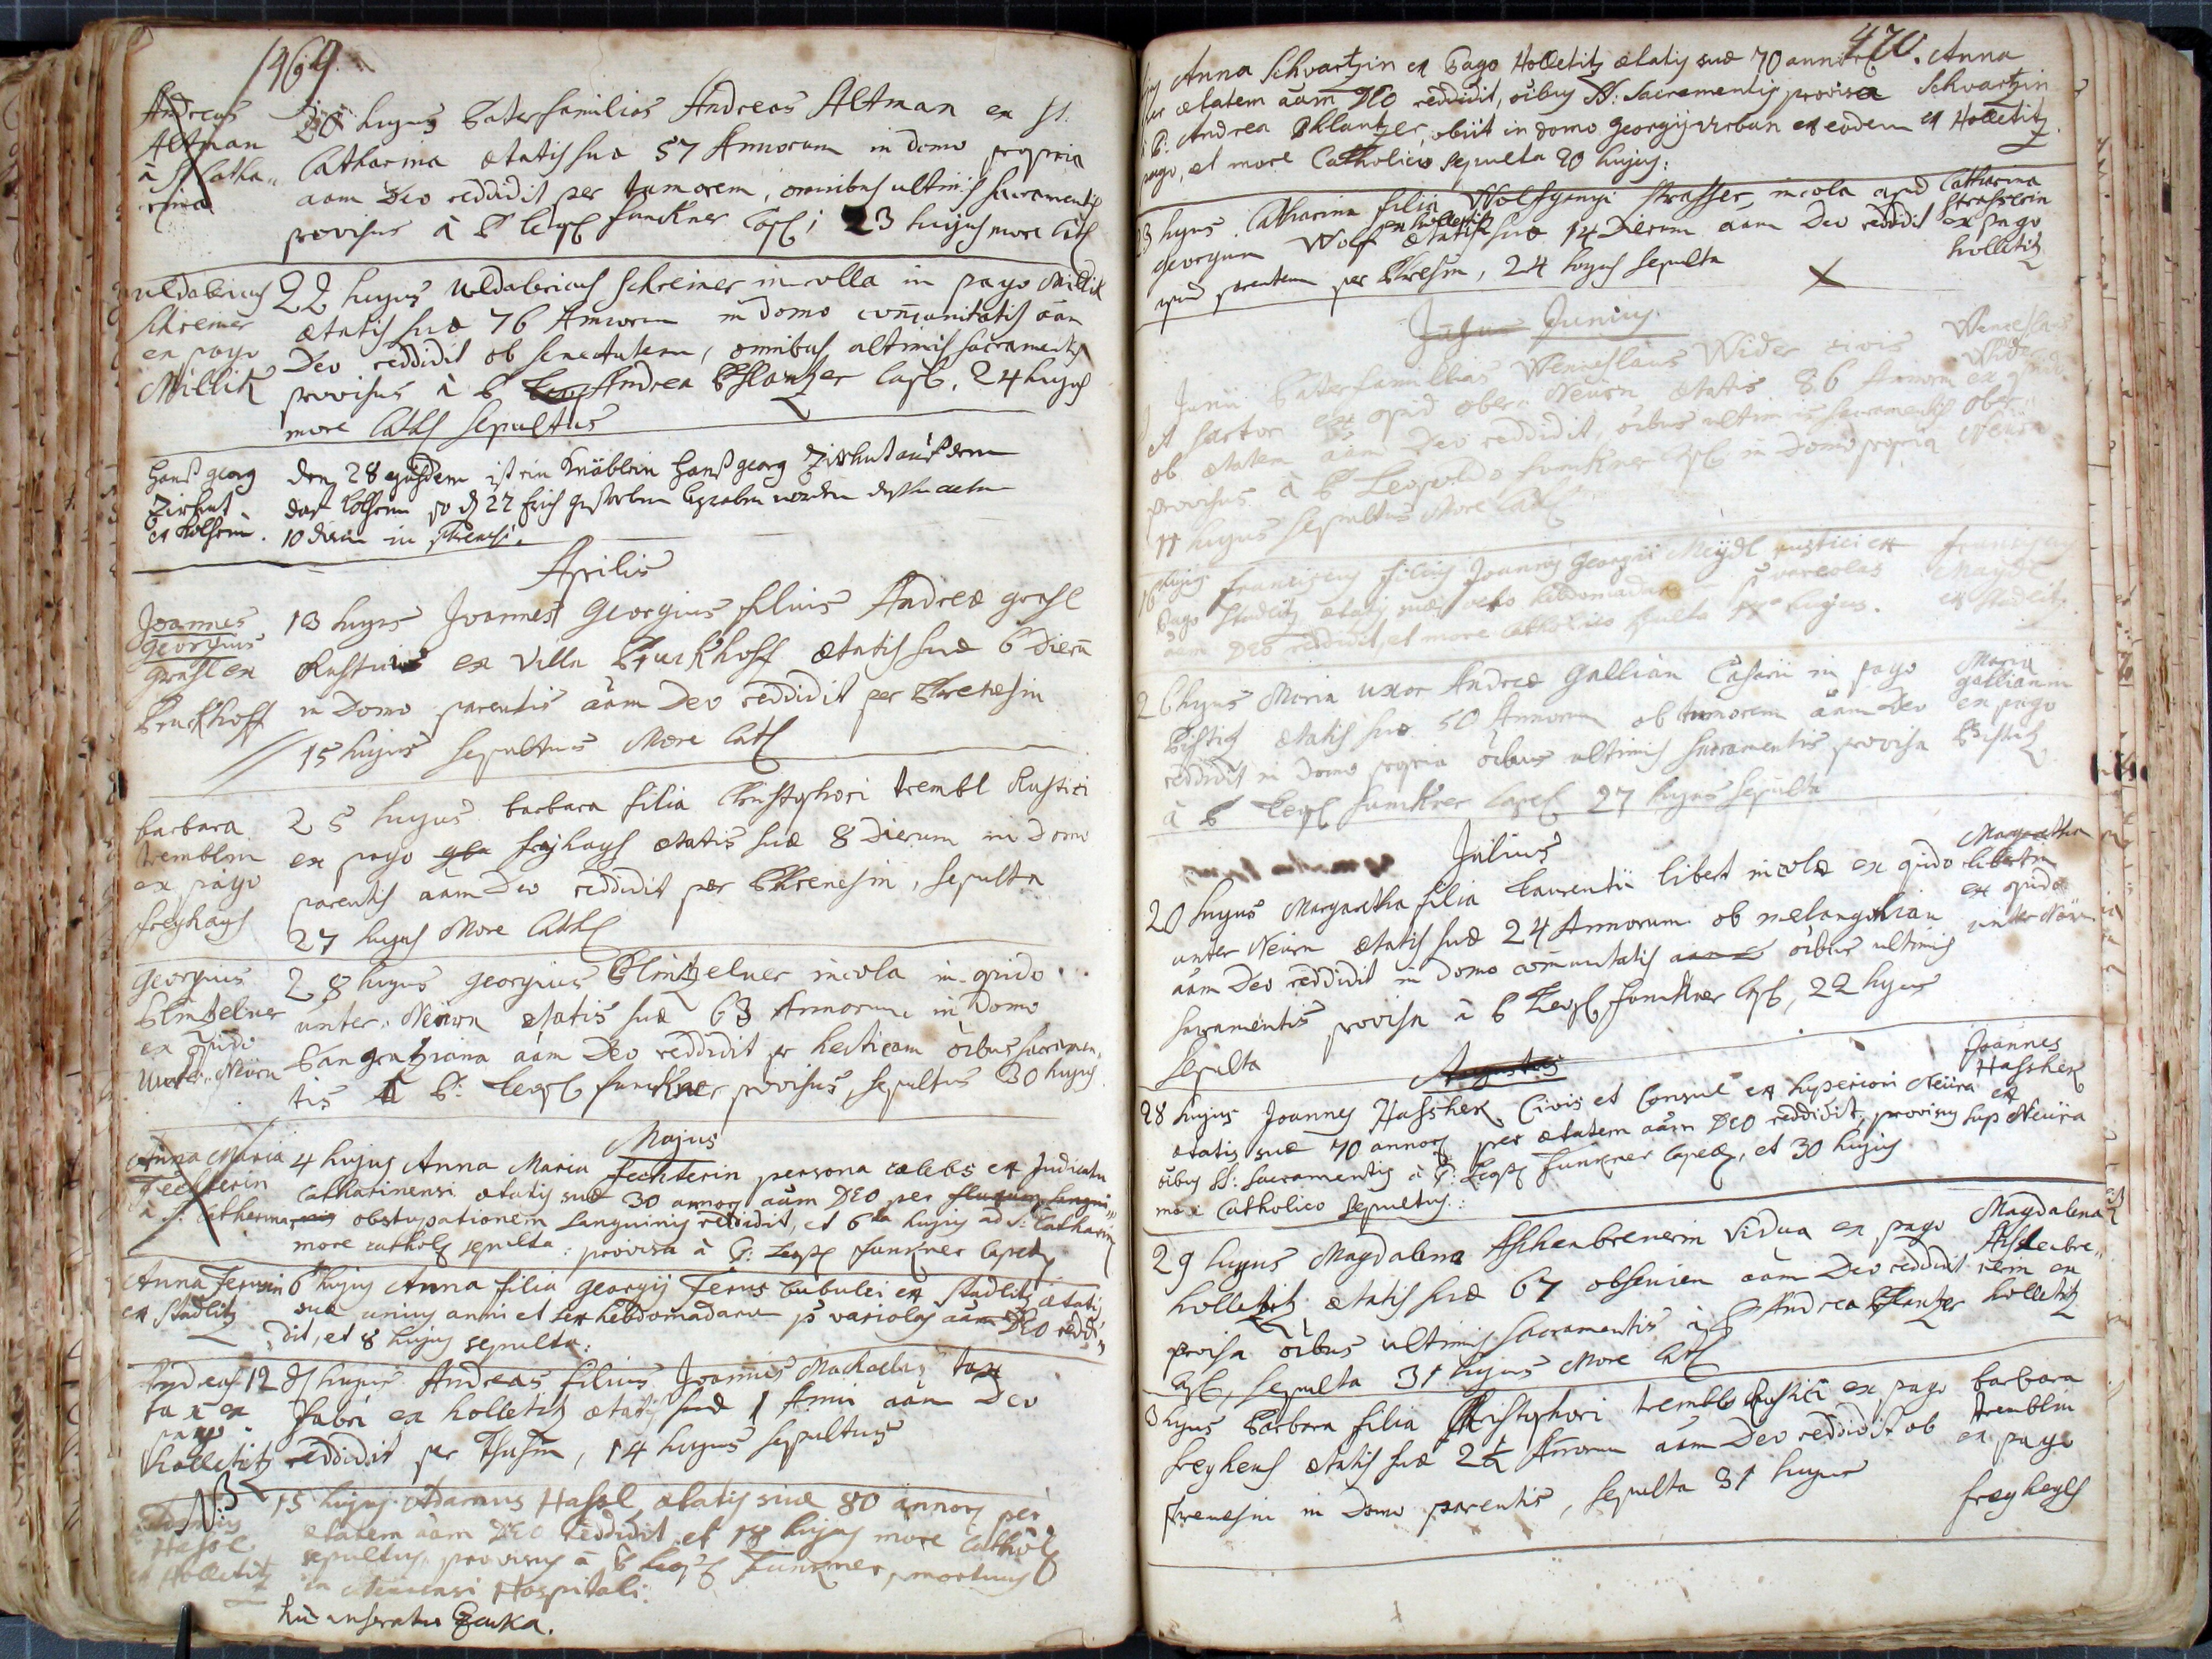 1469.
Andreas
Altman
à St Catha„
rina
20 hujus Paterfamilias Andreas Altman ex St.
Catharina ætatis suæ 57 Annorum in domo propria
aam Deo reddidit per tumorem, omnibus ultimis sacramentis
provisus à P Leop Funckner Cap; 23 hujus more Cath
Uldabricus
Schreiner
ex pago
Millik
22 hujus Uldabricus Schreiner incolla in pago Millik
ætatis suæ 76 Annorum in domo coмunitatis aam
Deo reddidit ob senectutem, omnibus ultimis sacramentis
provisus à P Andrea Pflantzer Cap. 24 hujus
more Cath sepultus
Hanß georg
Zirhut
ex Kolheim.
den 28 ejusdem ist ein Knäblein Hanß georg Zirhut auß dem
dorf Kolheim so d 22 begraben worden
10 dierum in
Aprilis
Joannes
Georgius
Grasl ex
Bruckhoff
13 hujus Joannes Georgius filius Andreæ grasl
Rustici ex villa Bruckhoff ætatis suæ 6 Dierū
in Domo parentis aam Deo reddidit per Phrenesin
15 hujus sepultus More Cath
barbara
tremblin
ex pago
freyhays
25 hujus barbara filia Christophori trembl Rustici
ex pago freyhays ætatis suæ 8 Dierum in Domo
parentis aam Deo reddidit per Phrenesin, sepulta
27 hujus More Cath
Georgius
Plintzelner
ex opido
Unter Neurn
28 hujus georgius Plintzelner incola in opido
unter Neurn ætatis suæ 63 Annorum in Domo
Pangratziana aam Deo reddidit per hecticam oibus sacramen„
tis à P: Leop Funckner provisus, sepultus 30 hujus
Majus
Anna Maria
Fechterin
à S. Catharina
4 hujus Anna Maria Fechterin persona cælebs ex Judicatu
Catharinensi ætatis suæ 30 annorum aam DEO per fluxum sangui„
nis obstupationem sanguinis reddidit, et 6ta hujus ad S. Catharin
more cathol sepulta: provisa à P: Leop Funkner Capel
Anna Ferusin
ex Stadlitz
6 hujus Anna filia Georgij Ferus bubulci ex Stadlitz ætatis
suæ unius anni et sex hebdomadarum p variolas aam DEO reddi„
dit, et 8 hujus sepulta:
Andreas
tax ex
pago
holletitz
12 hujus Andreas filius Joannis Machaelus tax
fabri ex holletitz ætatis suæ 1 Anni aam Deo
reddidit per Thusim, 14 hujus sepultus
NB
Adamus
Hassl
ex Holletitz
15 hujus Adamus Hassl ætatis suæ 80 annorum per
ætatem aam DEO reddidit, et 18 hujus more Cathol
sepultus, provisus à P Leop Funkner, mortuus
in Neurensi Hospitali:
470.
Anna Schvartzin ex Pago Holletitz ætatis suæ 70 annorum
per ætatem aam DEO reddidit, oibus SS: Sacramentis provisa
à P: Andrea Phlantzer, obiit in domo Georgij Urban ex eodem
pago, et more Catholico sepulta 20 hujus:
Anna
Schvartzin
ex Holletitz.
23 hujus Catharina filia Wolfgangi Strasser, incola apud
georgium Wolf ex holletitz ætatis suæ 14 Dierum aam Deo reddidit
apud parentem per Phresin, 24 hujus sepulta
Catharina
Strasserin
ex pago
holletitz
Junius
Junii Paterfamilias Wenceslaus Wider civis
et sartor ex opid ober Neurn ætatis 86 Annorum
ob ætatem aam Deo reddidit, oibus ultimis sacramentis
provisus à P Leopoldo Funckner Cap in Domo propria
11 hujus sepultus More Cath
Wenceslaus
Wider
ex opido
ober
Neurn
16 hujus Franciscus filius Joannis Georgii Meydl rustici ex
Pago Stadlitz ætatis suæ octo hebdomadarum p vareolas
aam DEO reddidit, et more Catholico sepulta hujus.
Franciscus
Maydl
ex Stadlitz
26 hujus Maria uxor Andreæ Gallian Casarii in pago
Pistitz ætatis suæ 50 Annorum ob tumorem aam Deo
reddidit in Domo propria oibus ultimis sacramentis provisa
à P Leop Funckner Capel 27 hujus sepulta
Maria
gallianin
ex pago
Pistitz
Julius
20 hujus Margaretha filia Laurentii libert incolæ ex opido
unter Neurn ætatis suæ 24 Annorum ob melangoliam
aam Deo reddidit in domo coмunitatis oibus ultimis
sacramentis provisa à P Leop Funckner Cap, 22 hujus
sepulta
Margaretha
libertin
ex opido
unter Neurn
Augustus
28 hujus Joannes Hasshek Civis et Consul ex superiori Neüra
ætatis suæ 70 annorum per ætatem aam DEO reddidit, provisus
oibus SS: Sacramentis à P: Leop Funkner Capel, et 30 hujus
more Catholico sepultus:
Joannes
Hasshek
ex
Sup Neüra
29 hujus Magdalena Aschenbrenerin Vidua ex pago
holletitz ætatis suæ 67 ob senium aam Deo reddidit
provisa oibus ultimis sacramentis à P Andrea Pflantzer
Cap, sepulta 31 hujus More Cath
Magdalena
Aschenbre„
nerin ex
holletitz
3 hujus Barbara filia Christophori trembl Rustici ex pago
freyhays ætatis suæ 2½ Annorum aam Deo reddidit ob
frenesin in Domo parentis, sepulta 31 hujus
barbara
tremblin
ex pago
freyheys